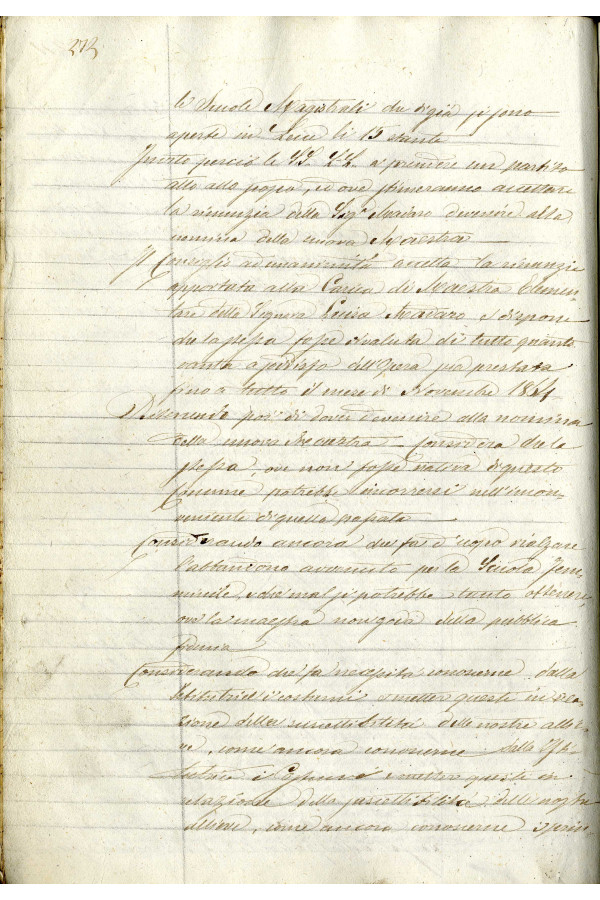 272
le Scuole Magistrali che di già si sono
aperte in Lecce li 15 stante
Invito perciò le SS. LL. a prendere un partito
atto allo scopo, ed ove stimeranno accettare
la rinunzia della Sig.ª Madaro devenire alla
nomina della nuova Maestra
Il Consiglio ad unanimità accetta la rinunzia
apportata alla Carica di Maestra Elemen-
tare della Signora Luisa Madaro, e disponi
che la stessa fosse soddisfatta di tutto quanto
vanta a per l'opera già prestata
fino a tutto il mese di Novembre 1864
Ritenendo poi di dover devenire alla nomina
della nuova Maestra considera che la
stessa ove non fosse nativa di questo
Comune potrebbe incorrersi nell'incon-
veniente di quella passata
Considerando ancora che fa d'uopo rialzare
l'abbandono avvenuto per la Scuola Fem-
minile, e che mal si potrebbe tanto ottenere,
ove la maestra non goda della pubblica
stima
Considerando che fa necessità conoscerne dalla
Istitutrice i costumi e metter questi in rela-
zione della suscettibilità delle nostre allie-
ve, come ancora conoscerne dalla Isti-
tutrice i e metter questi in
relazione della suscettibilità delle nostre
allieve, come ancora conoscerne i prin-